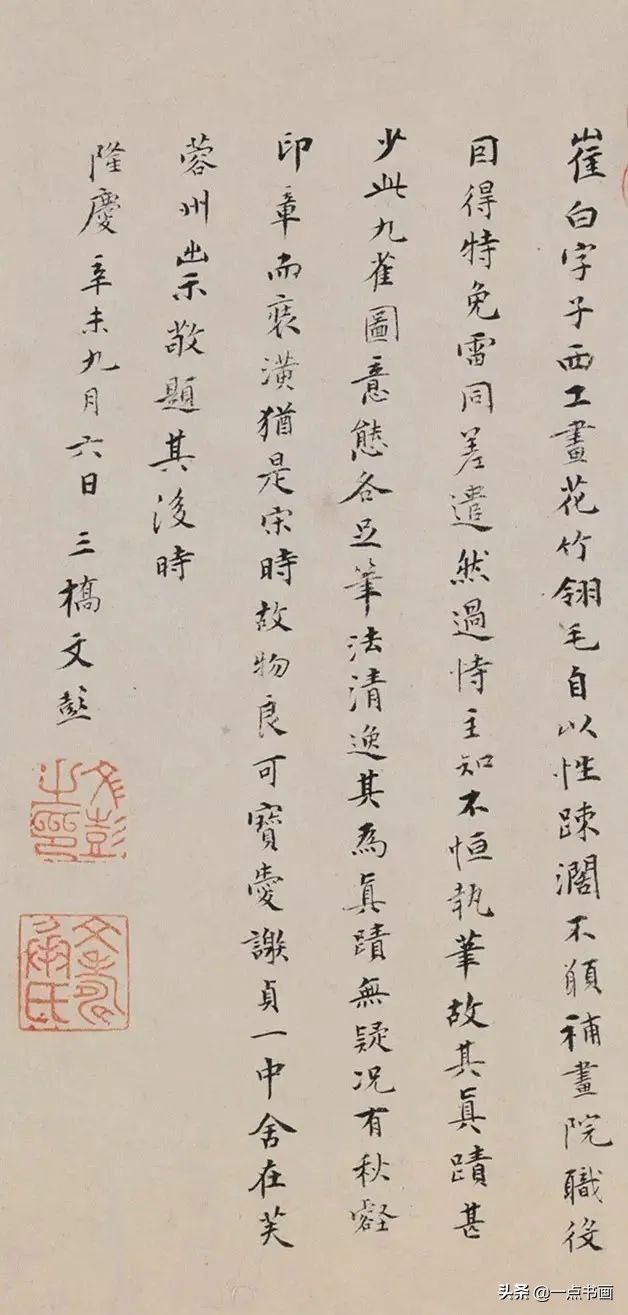 崔白字子西工畫花竹翎毛自以性踈濶不願補畫院職後
因得特免雷同差遣然過恃主知不恒執筆故其眞蹟甚
少此九雀圖意態各足筆法清逸其為眞蹟無疑况有秋壑
印章而裝潢猶是宋時故物良可寶愛謝貞一中舍在芙
蓉州出示敬題其後時
隆慶辛未九月六日三橋文彭
文彭之印
文壽承氏
头条 @一点书画